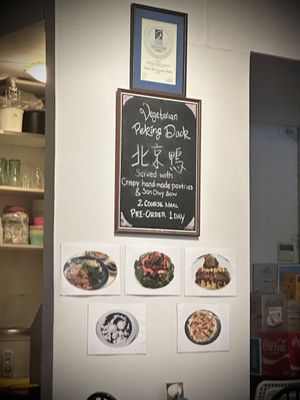 Vegetarian
Peking Duck
北京鸭
Served with
Crispy hand made pastries
& San Choy Bow
2 Course Meal
Pre-Order 1 Day
Coca-Cola